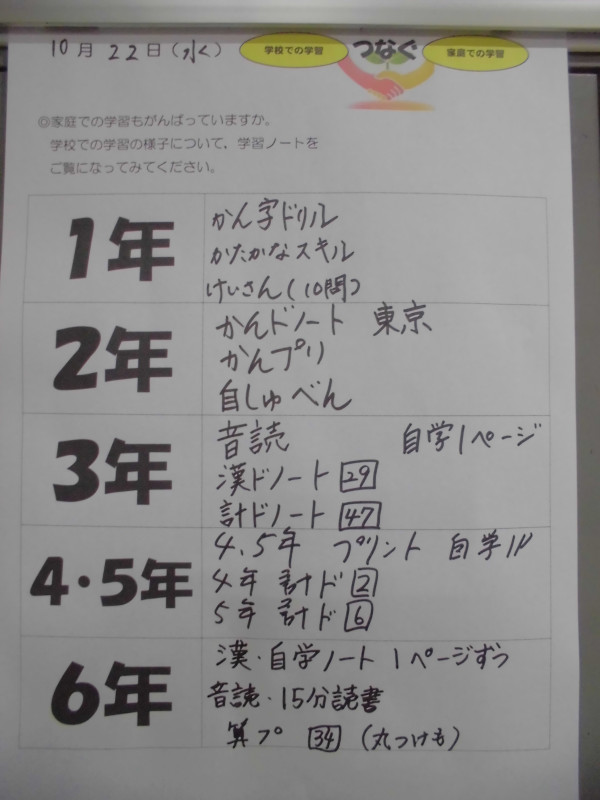 10月 22日(水)
学校での学習 つなぐ 家庭での学習
◎家庭での学習もがんばっていますか。
学校での学習の様子について、学習ノートを
ご覧になってみてください。
1年
かん字ドリル
かたかなスキル
けいさん(10問)
2年
かんドノート 東京
かんプリ
自しゅべん
3年
音読 自学1ページ
漢ドノート 29
計ドノート 47
4・5年
4.5年 プリント 自学1P
4年 計ド 2
5年 計ド 6
6年
漢・自学ノート 1ページずつ
音読・15分読書
算プ 34 (丸つけも)